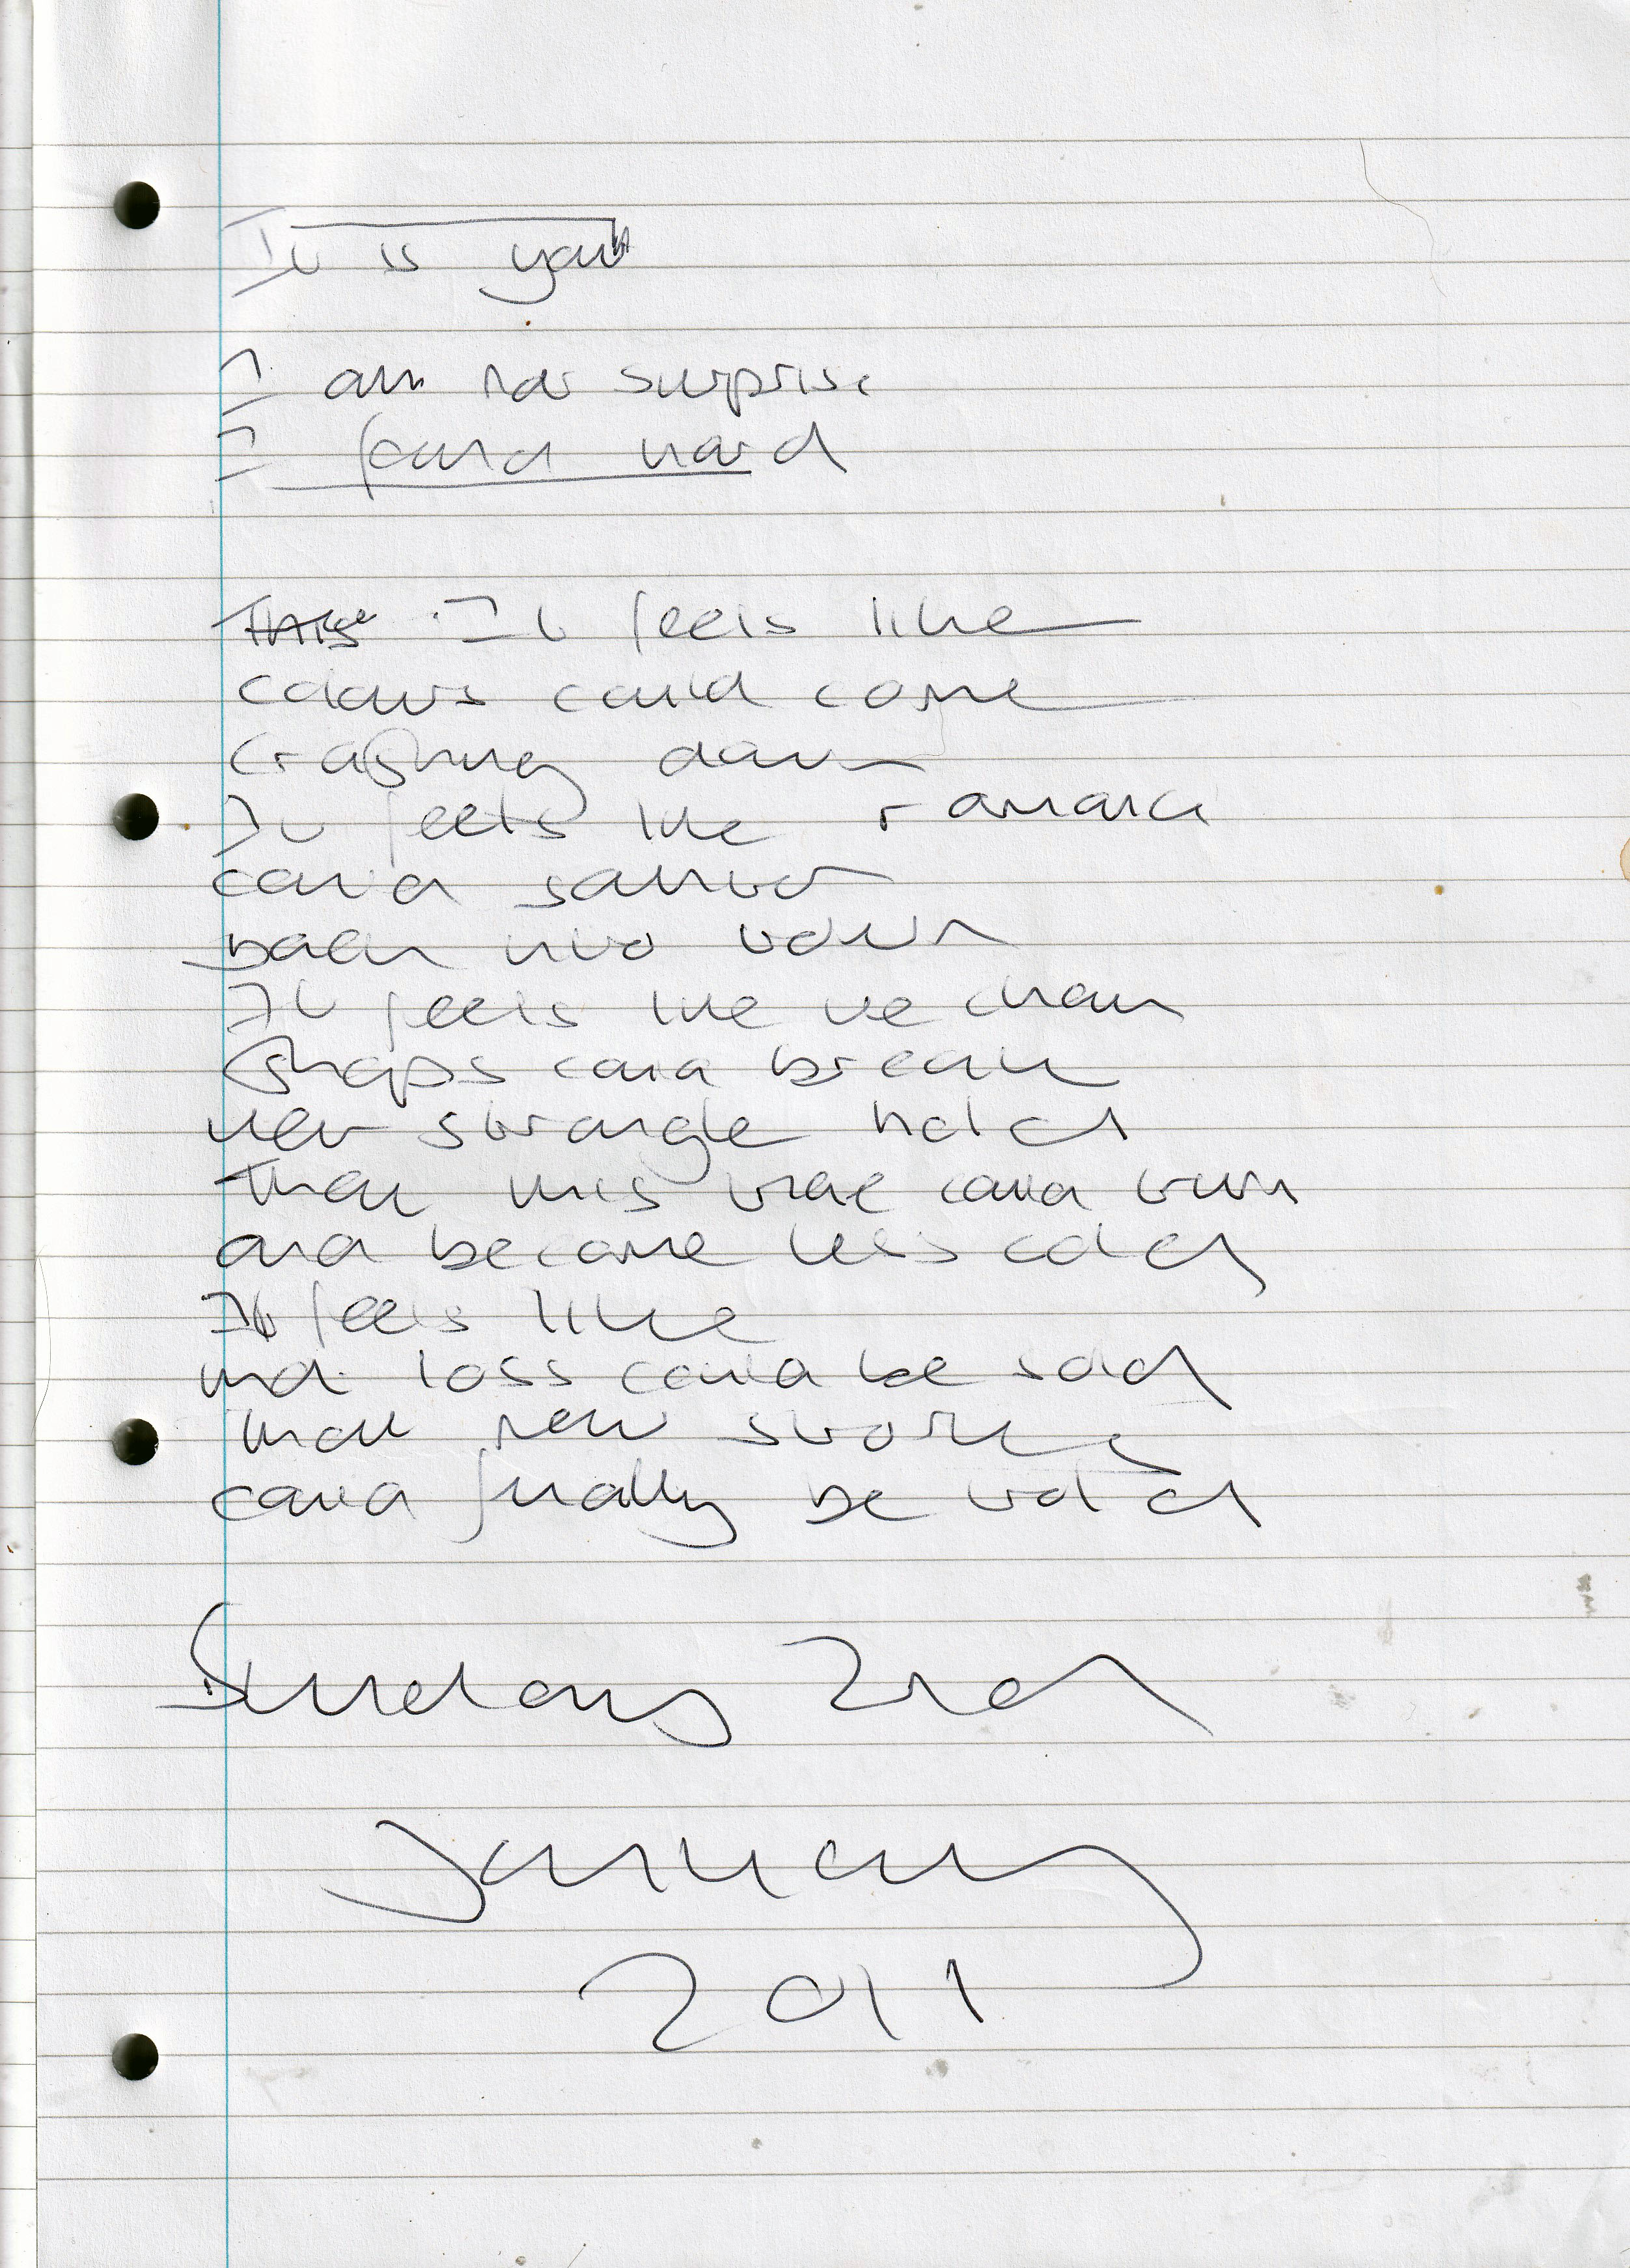 It is you
I am not surprise
I found hard
It feels like
colours could come
crashing down
It feels like romance
could
back into town
It feels like the chain
shops could break
their strangle hold
That this tide could turn
and become less cold
It feels like
that loss could be sold
that new stories
could finally be told
Sunday 2nd
January
2011